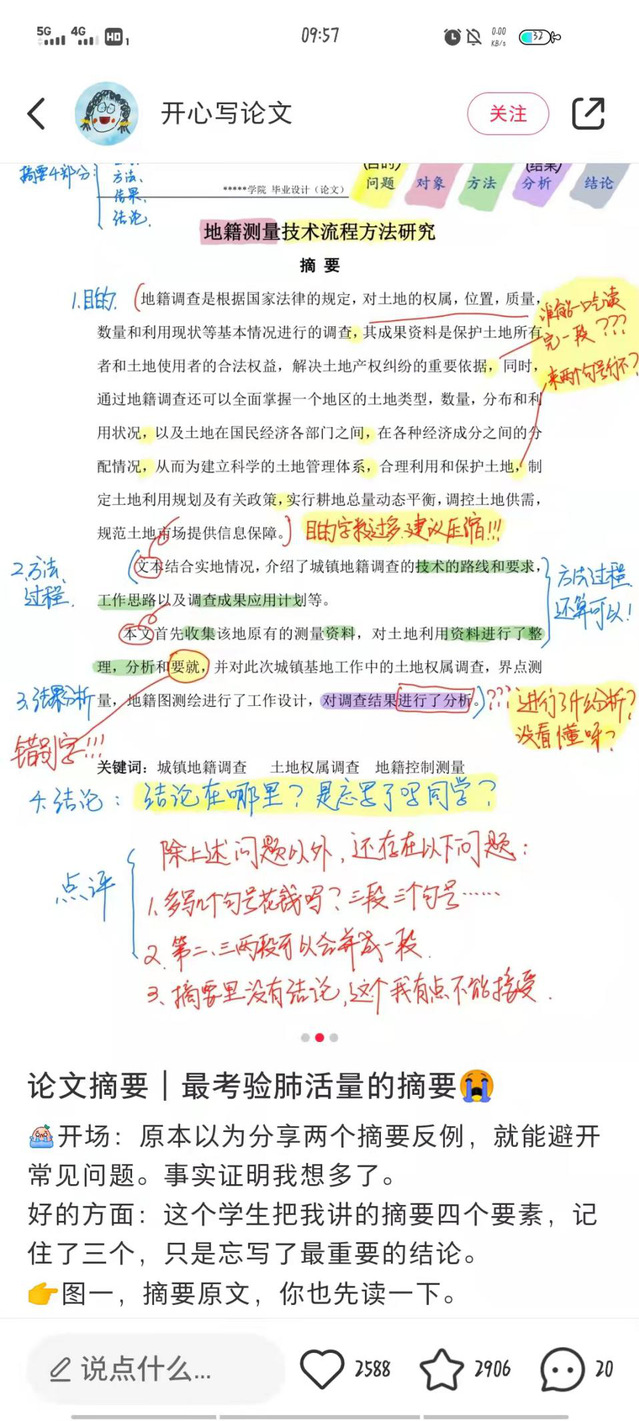 5G 4G HD 1 09:57 0.00 KB/s 32
开心写论文 关注
摘要4部分：
方法、
结果、
结论.
*****学院 毕业设计（论文）
(目的)
问题 对象 方法 (结果)分析 结论
地籍测量技术流程方法研究
摘 要
1.目的.
（地籍调查是根据国家法律的规定，对土地的权属，位置，质量，
数量和利用现状等基本情况进行的调查，其成果资料是保护土地所有
者和土地使用者的合法权益，解决土地产权纠纷的重要依据，同时，
通过地籍调查还可以全面掌握一个地区的土地类型，数量，分布和利
用状况，以及土地在国民经济各部门之间，在各种经济成分之间的分
配情况，从而为建立科学的土地管理体系，合理利用和保护土地，制
定土地利用规划及有关政策，实行耕地总量动态平衡，调控土地供需，
规范土地市场提供信息保障。）
谁能一口气读
完一段???
来两个句号行不?
目的字数过多.建议压缩!!!
2.方法、
过程.
（文本结合实地情况，介绍了城镇地籍调查的技术的路线和要求，
工作思路以及调查成果应用计划等。
方法过程
还算可以!
本文首先收集该地原有的测量资料，对土地利用资料进行了整
理，分析和要就，并对此次城镇基地工作中的土地权属调查，界点测
量，地籍图测绘进行了工作设计，对调查结果进行了分析。）
3.结果分析
错别字!!!
???进行了什么分析?
没看懂呀?
关键词：城镇地籍调查 土地权属调查 地籍控制测量
4.结论：结论在哪里？是忘写了吗同学？
点评
除上述问题以外，还存在以下问题：
1.多写几个句号花钱吗？三段三个句号……
2.第二、三两段可以合并成一段.
3、摘要里没有结论，这个我有点不能接受.
论文摘要｜最考验肺活量的摘要😭
开场：原本以为分享两个摘要反例，就能避开
常见问题。事实证明我想多了。
好的方面：这个学生把我讲的摘要四个要素，记
住了三个，只是忘写了最重要的结论。
👉图一，摘要原文，你也先读一下。
说点什么... 2588 2906 20